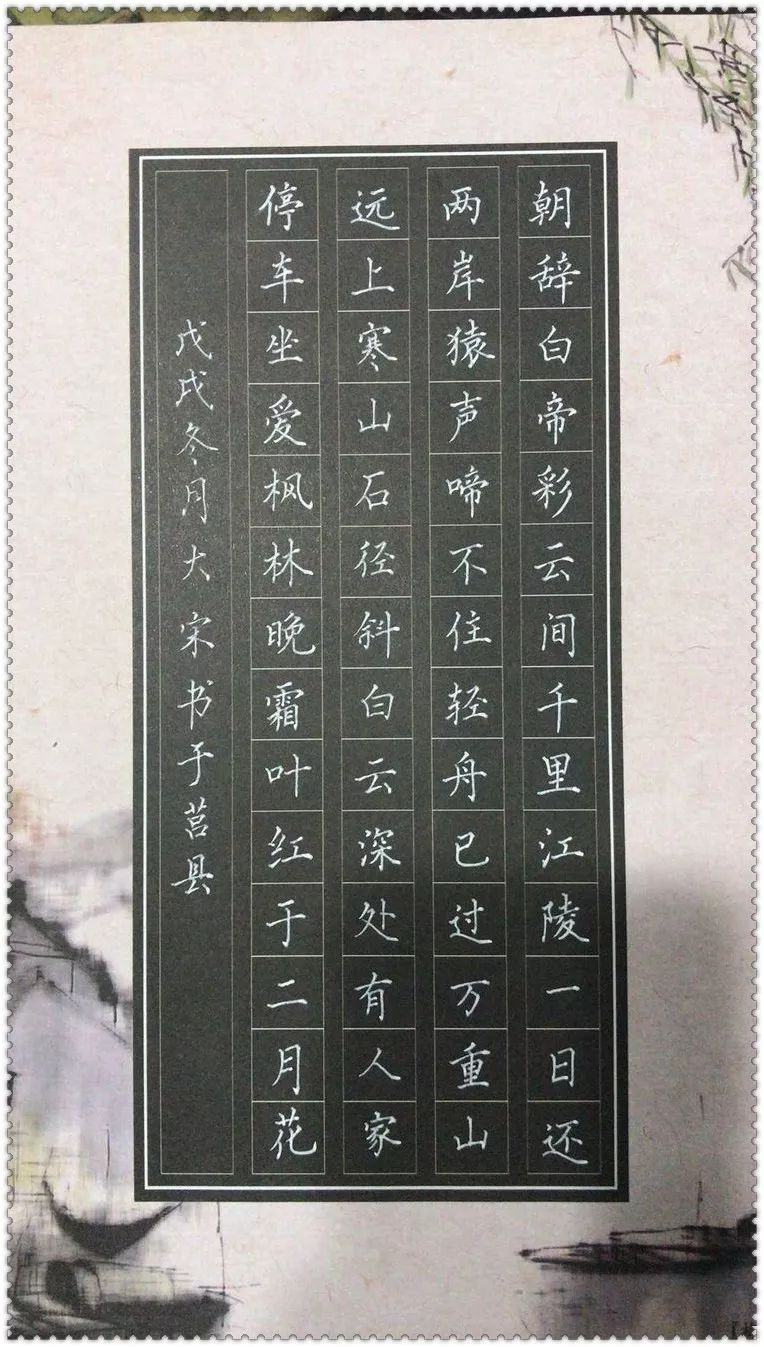 朝辞白帝彩云间千里江陵一日还
两岸猿声啼不住轻舟已过万重山
远上寒山石径斜白云深处有人家
停车坐爱枫林晚霜叶红于二月花
戊戌冬月大宋书于莒县